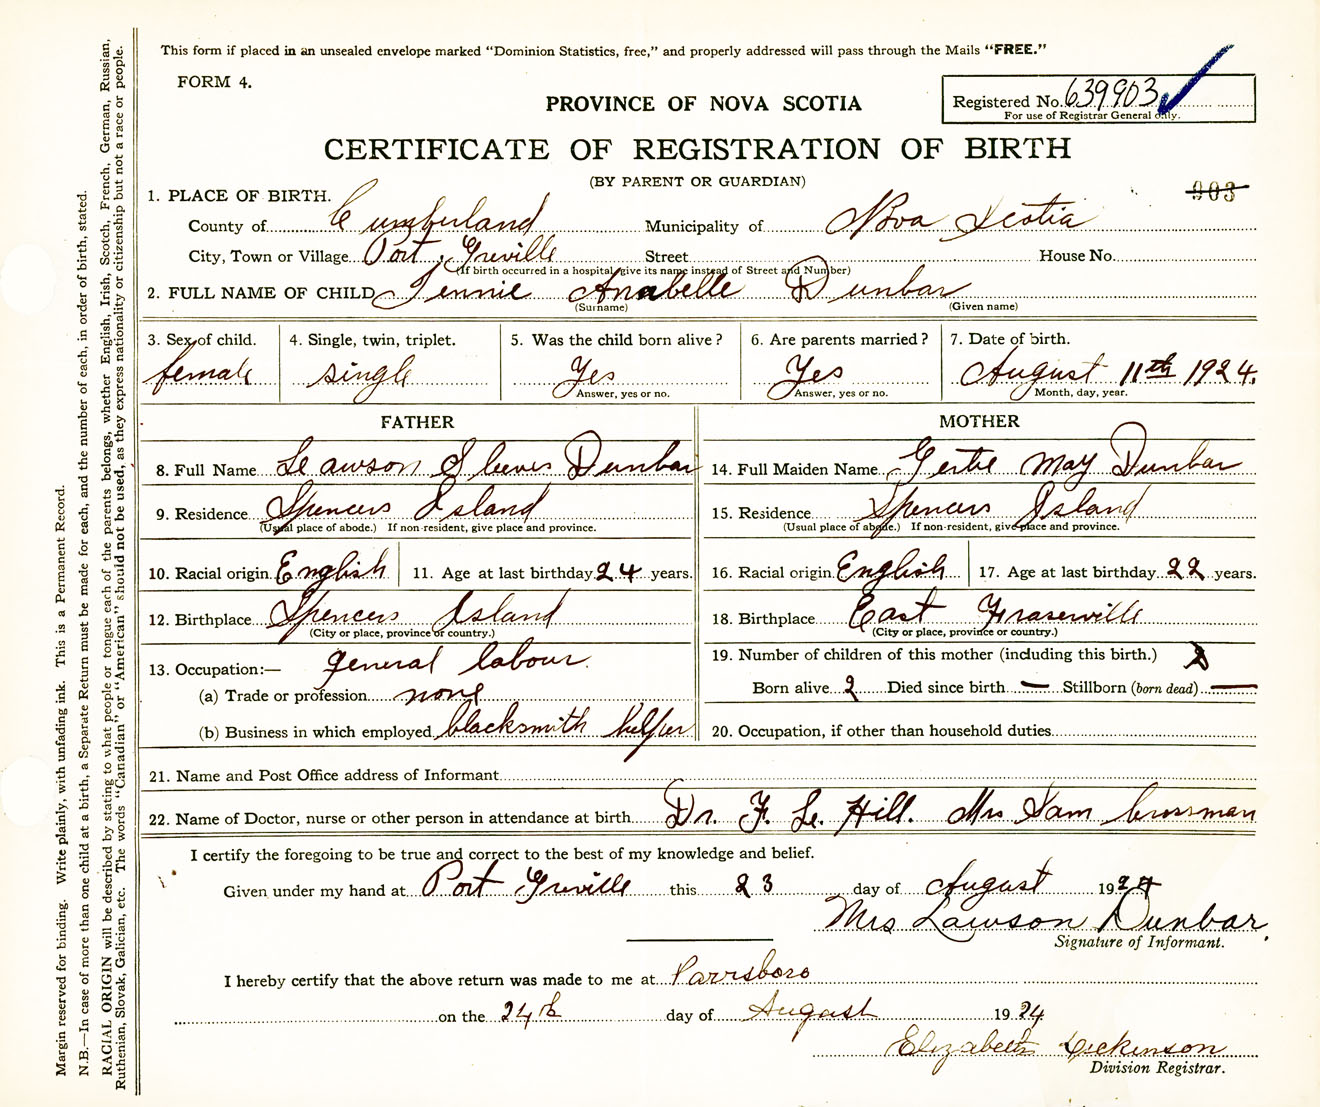 This form if placed in an unsealed envelope marked “Dominion Statistics, free,” and properly addressed will pass through the Mails “FREE.”
FORM 4.
Registered No. 639903
For use of Registrar General only.
PROVINCE OF NOVA SCOTIA
CERTIFICATE OF REGISTRATION OF BIRTH
(BY PARENT OR GUARDIAN)
903
1. PLACE OF BIRTH.
County of Cumberland Municipality of Nova Scotia
City, Town or Village Port Greville Street House No.
(If birth occurred in a hospital, give its name instead of Street and Number)
2. FULL NAME OF CHILD Jennie Anabelle Dunbar
(Surname) (Given name)
3. Sex of child. 4. Single, twin, triplet. 5. Was the child born alive? 6. Are parents married? 7. Date of birth.
female single Yes Yes August 11th 1924.
Answer, yes or no. Answer, yes or no. Month, day, year.
FATHER MOTHER
8. Full Name Lawson Sleeves Dunbar 14. Full Maiden Name Gertie May Dunbar
9. Residence Spencers Island 15. Residence Spencers Island
(Usual place of abode.) If non-resident, give place and province. (Usual place of abode.) If non-resident, give place and province.
10. Racial origin English 11. Age at last birthday 24 years. 16. Racial origin English 17. Age at last birthday 22 years.
12. Birthplace Spencers Island 18. Birthplace East Fraserville
(City or place, province or country.) (City or place, province or country.)
13. Occupation:— general labour. 19. Number of children of this mother (including this birth.) 2
(a) Trade or profession none Born alive 2 Died since birth — Stillborn (born dead) —
(b) Business in which employed blacksmith helper 20. Occupation, if other than household duties
21. Name and Post Office address of Informant
22. Name of Doctor, nurse or other person in attendance at birth Dr. F. L. Hill. Mrs Sam Crossman
I certify the foregoing to be true and correct to the best of my knowledge and belief.
Given under my hand at Port Greville this 23 day of August 1924
Mrs Lawson Dunbar.
Signature of Informant.
I hereby certify that the above return was made to me at Parrsboro
on the 24th day of August 1924
Elizabeth Dickinson
Division Registrar.
Margin reserved for binding. Write plainly, with unfading ink. This is a Permanent Record.
N.B.—In case of more than one child at a birth, a Separate Return must be made for each, and the number of each, in order of birth, stated.
RACIAL ORIGIN will be described by stating to what people or tongue each of the parents belongs, whether English, Irish, Scotch, French, German, Russian,
Ruthenian, Slovak, Galician, etc. The words “Canadian” or “American” should not be used, as they express nationality or citizenship but not a race or people.